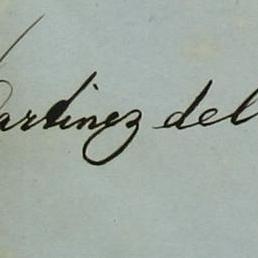 artinez del